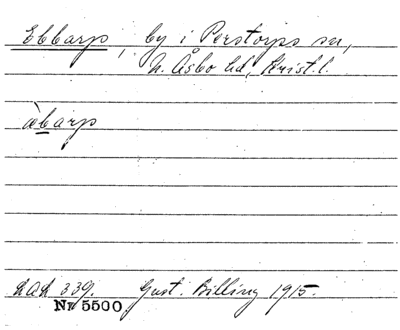 Ebbarp, by i Perstorps sn,
N. Åsbo hd, Krist. l.
àbarp
LAL 339. Gust. Billing 1915.
Nr 5500